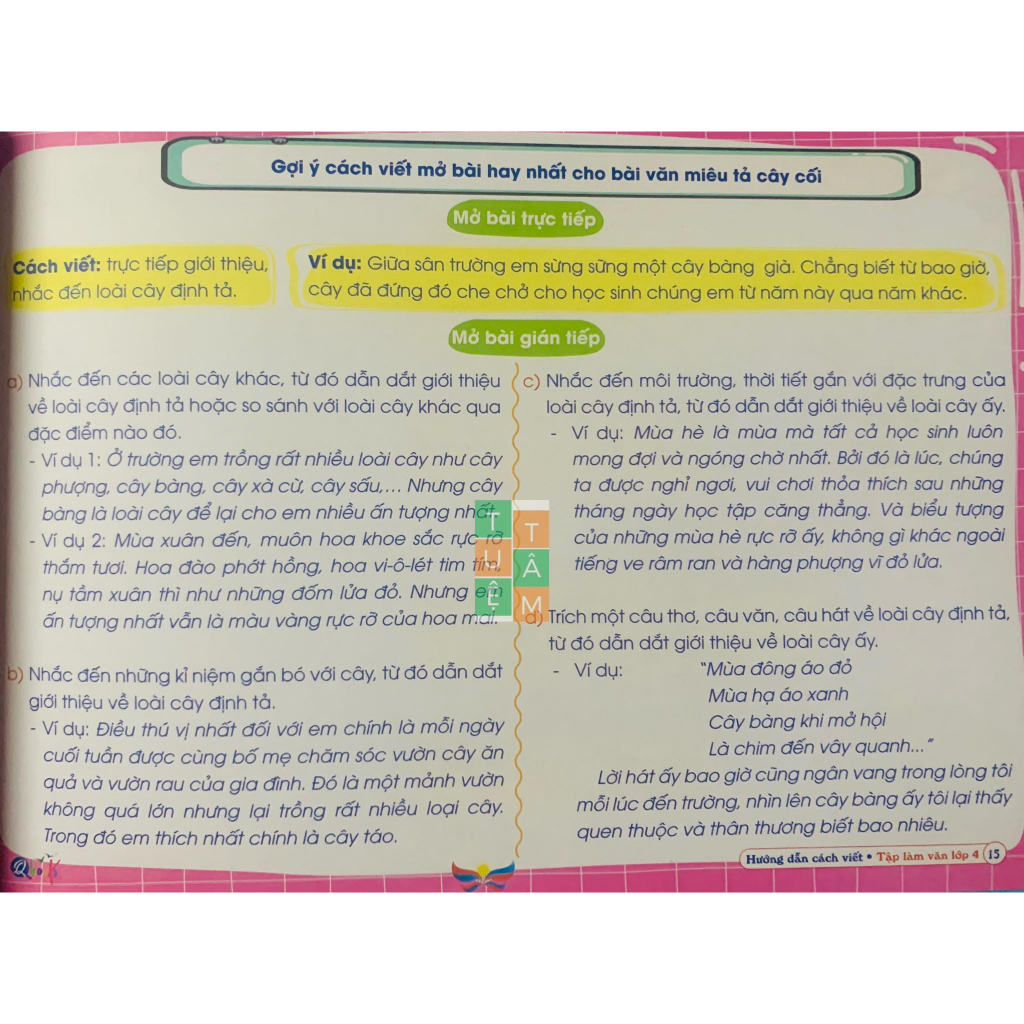 Gợi ý cách viết mở bài hay nhất cho bài văn miêu tả cây cối
Mở bài trực tiếp
Cách viết: trực tiếp giới thiệu,
nhắc đến loài cây định tả.
Ví dụ: Giữa sân trường em sừng sững một cây bàng già. Chẳng biết từ bao giờ,
cây đã đứng đó che chở cho học sinh chúng em từ năm này qua năm khác.
Mở bài gián tiếp
a) Nhắc đến các loài cây khác, từ đó dẫn dắt giới thiệu
về loài cây định tả hoặc so sánh với loài cây khác qua
đặc điểm nào đó.
- Ví dụ 1: Ở trường em trồng rất nhiều loài cây như cây
phượng, cây bàng, cây xà cừ, cây sấu,... Nhưng cây
bàng là loài cây để lại cho em nhiều ấn tượng nhất.
- Ví dụ 2: Mùa xuân đến, muôn hoa khoe sắc rực rỡ
thắm tươi. Hoa đào phớt hồng, hoa vi-ô-lét tim tím,
nụ tầm xuân thì như những đốm lửa đỏ. Nhưng em
ấn tượng nhất vẫn là màu vàng rực rỡ của hoa mai.
b) Nhắc đến những kỉ niệm gắn bó với cây, từ đó dẫn dắt
giới thiệu về loài cây định tả.
- Ví dụ: Điều thú vị nhất đối với em chính là mỗi ngày
cuối tuần được cùng bố mẹ chăm sóc vườn cây ăn
quả và vườn rau của gia đình. Đó là một mảnh vườn
không quá lớn nhưng lại trồng rất nhiều loại cây.
Trong đó em thích nhất chính là cây táo.
c) Nhắc đến môi trường, thời tiết gắn với đặc trưng của
loài cây định tả, từ đó dẫn dắt giới thiệu về loài cây ấy.
- Ví dụ: Mùa hè là mùa mà tất cả học sinh luôn
mong đợi và ngóng chờ nhất. Bởi đó là lúc, chúng
ta được nghỉ ngơi, vui chơi thỏa thích sau những
tháng ngày học tập căng thẳng. Và biểu tượng
của những mùa hè rực rỡ ấy, không gì khác ngoài
tiếng ve râm ran và hàng phượng vĩ đỏ lửa.
d) Trích một câu thơ, câu văn, câu hát về loài cây định tả,
từ đó dẫn dắt giới thiệu về loài cây ấy.
- Ví dụ: "Mùa đông áo đỏ
Mùa hạ áo xanh
Cây bàng khi mở hội
Là chim đến vây quanh..."
Lời hát ấy bao giờ cũng ngân vang trong lòng tôi
mỗi lúc đến trường, nhìn lên cây bàng ấy tôi lại thấy
quen thuộc và thân thương biết bao nhiêu.
TUỆ
TÂM
Hướng dẫn cách viết • Tập làm văn lớp 4 15